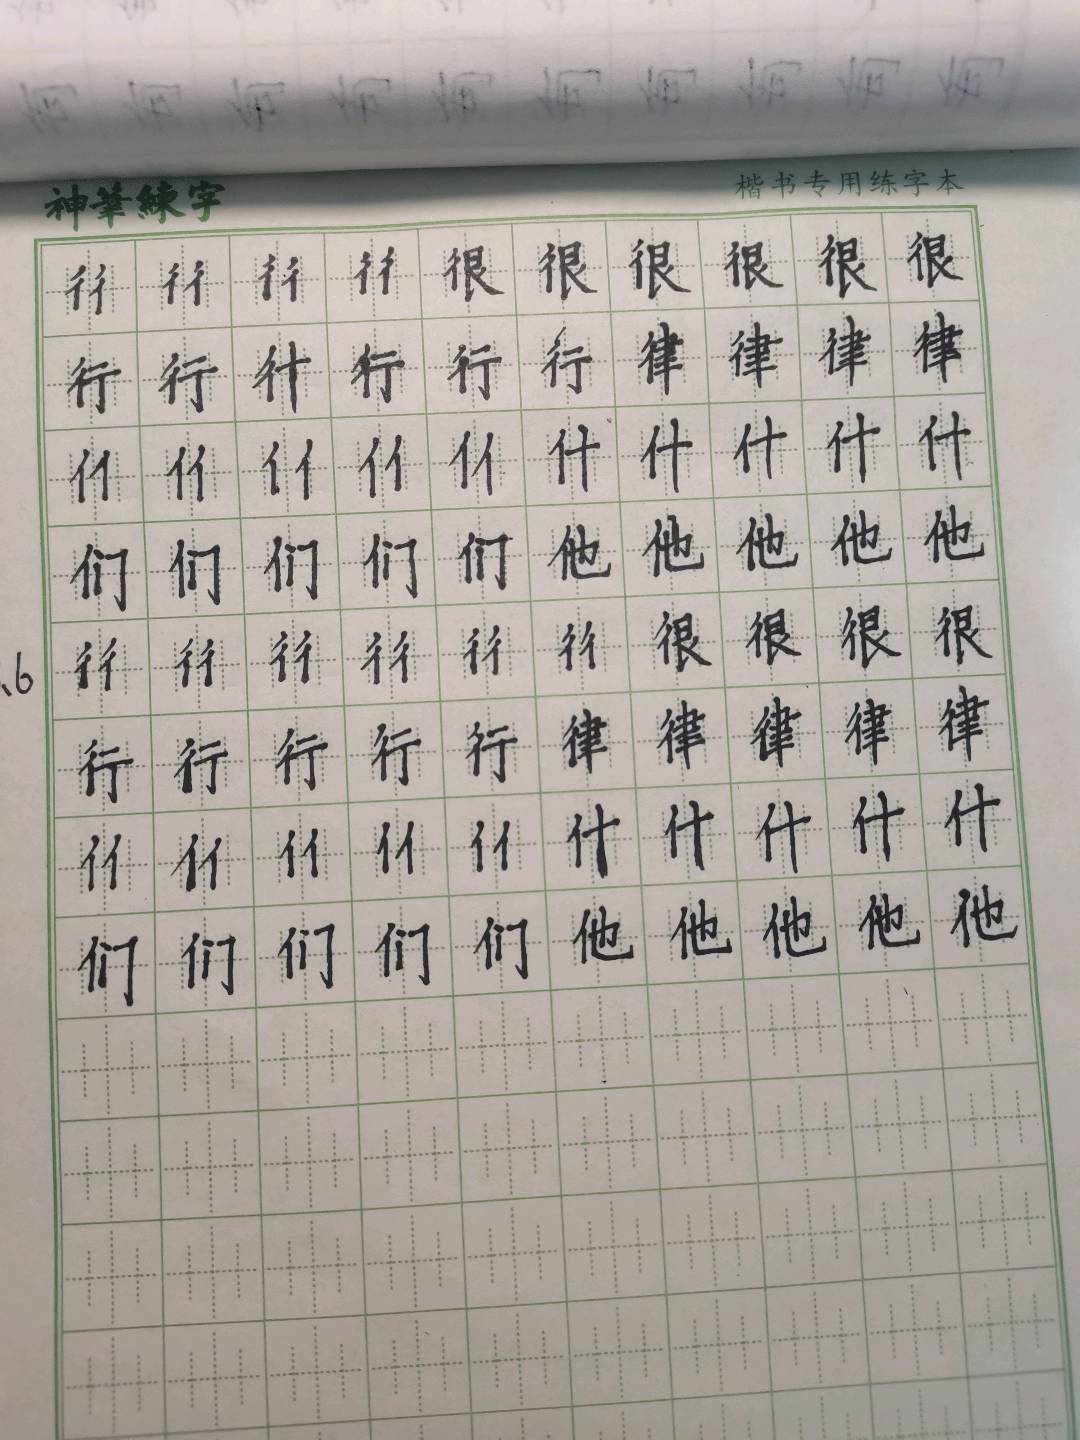 神筆練字
楷书专用练字本
彳彳 彳彳 彳彳 彳彳 很 很 很 很 很 很
行 行 什 行 行 行 律 律 律 律
亻亻 亻亻 亻亻 亻亻 亻亻 什 什 什 什 什
们 们 们 们 们 他 他 他 他 他
彳彳 彳彳 彳彳 彳彳 彳彳 彳彳 很 很 很 很
行 行 行 行 行 律 律 律 律 律
亻亻 亻亻 亻亻 亻亻 亻亻 什 什 什 什 什
们 们 们 们 们 他 他 他 他 他